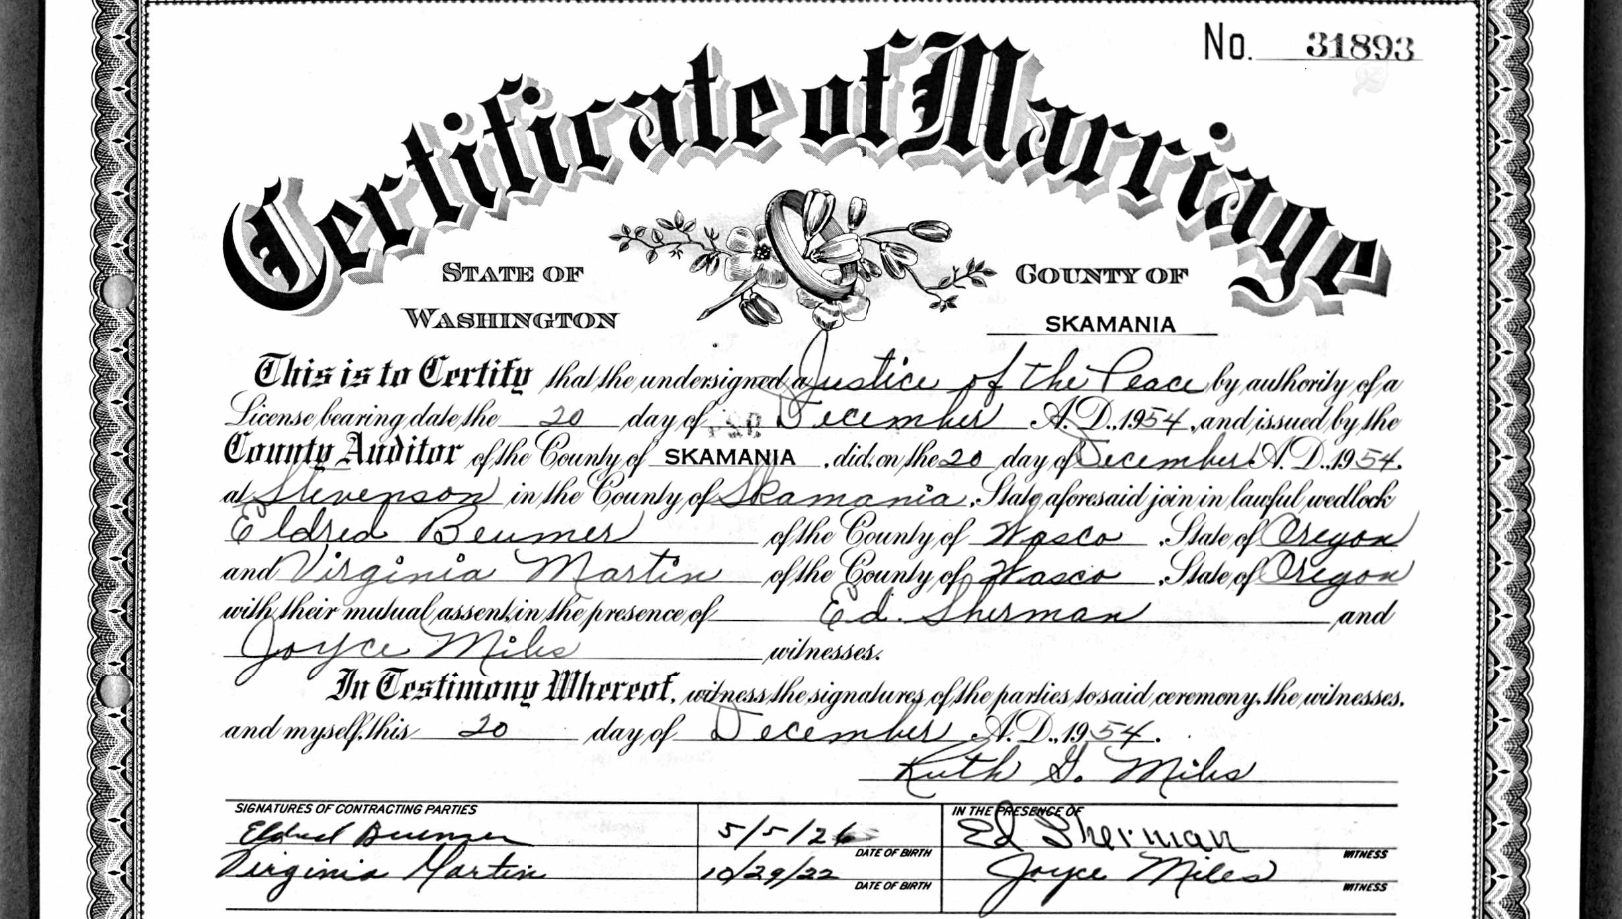 No. 31893
Certificate of Marriage
STATE OF WASHINGTON
COUNTY OF SKAMANIA
This is to Certify that the undersigned, a Justice of the Peace by authority of a
License bearing date the 20 day of December A. D., 1954, and issued by the
County Auditor of the County of SKAMANIA, did, on the 20 day of December A. D., 1954,
at Stevenson in the County of Skamania, State aforesaid join in lawful wedlock
Eldred Beumer of the County of Wasco, State of Oregon
and Virginia Martin of the County of Wasco, State of Oregon
with their mutual assent, in the presence of Ed. Sherman and
Joyce Miles witnesses.
In Testimony Whereof, witness the signatures of the parties to said ceremony, the witnesses,
and myself, this 20 day of December A. D., 1954.
Ruth G. Miles
SIGNATURES OF CONTRACTING PARTIES IN THE PRESENCE OF
Eldred Beumer 5/5/26 DATE OF BIRTH Ed Sherman WITNESS
Virginia Martin 10/29/22 DATE OF BIRTH Joyce Miles WITNESS